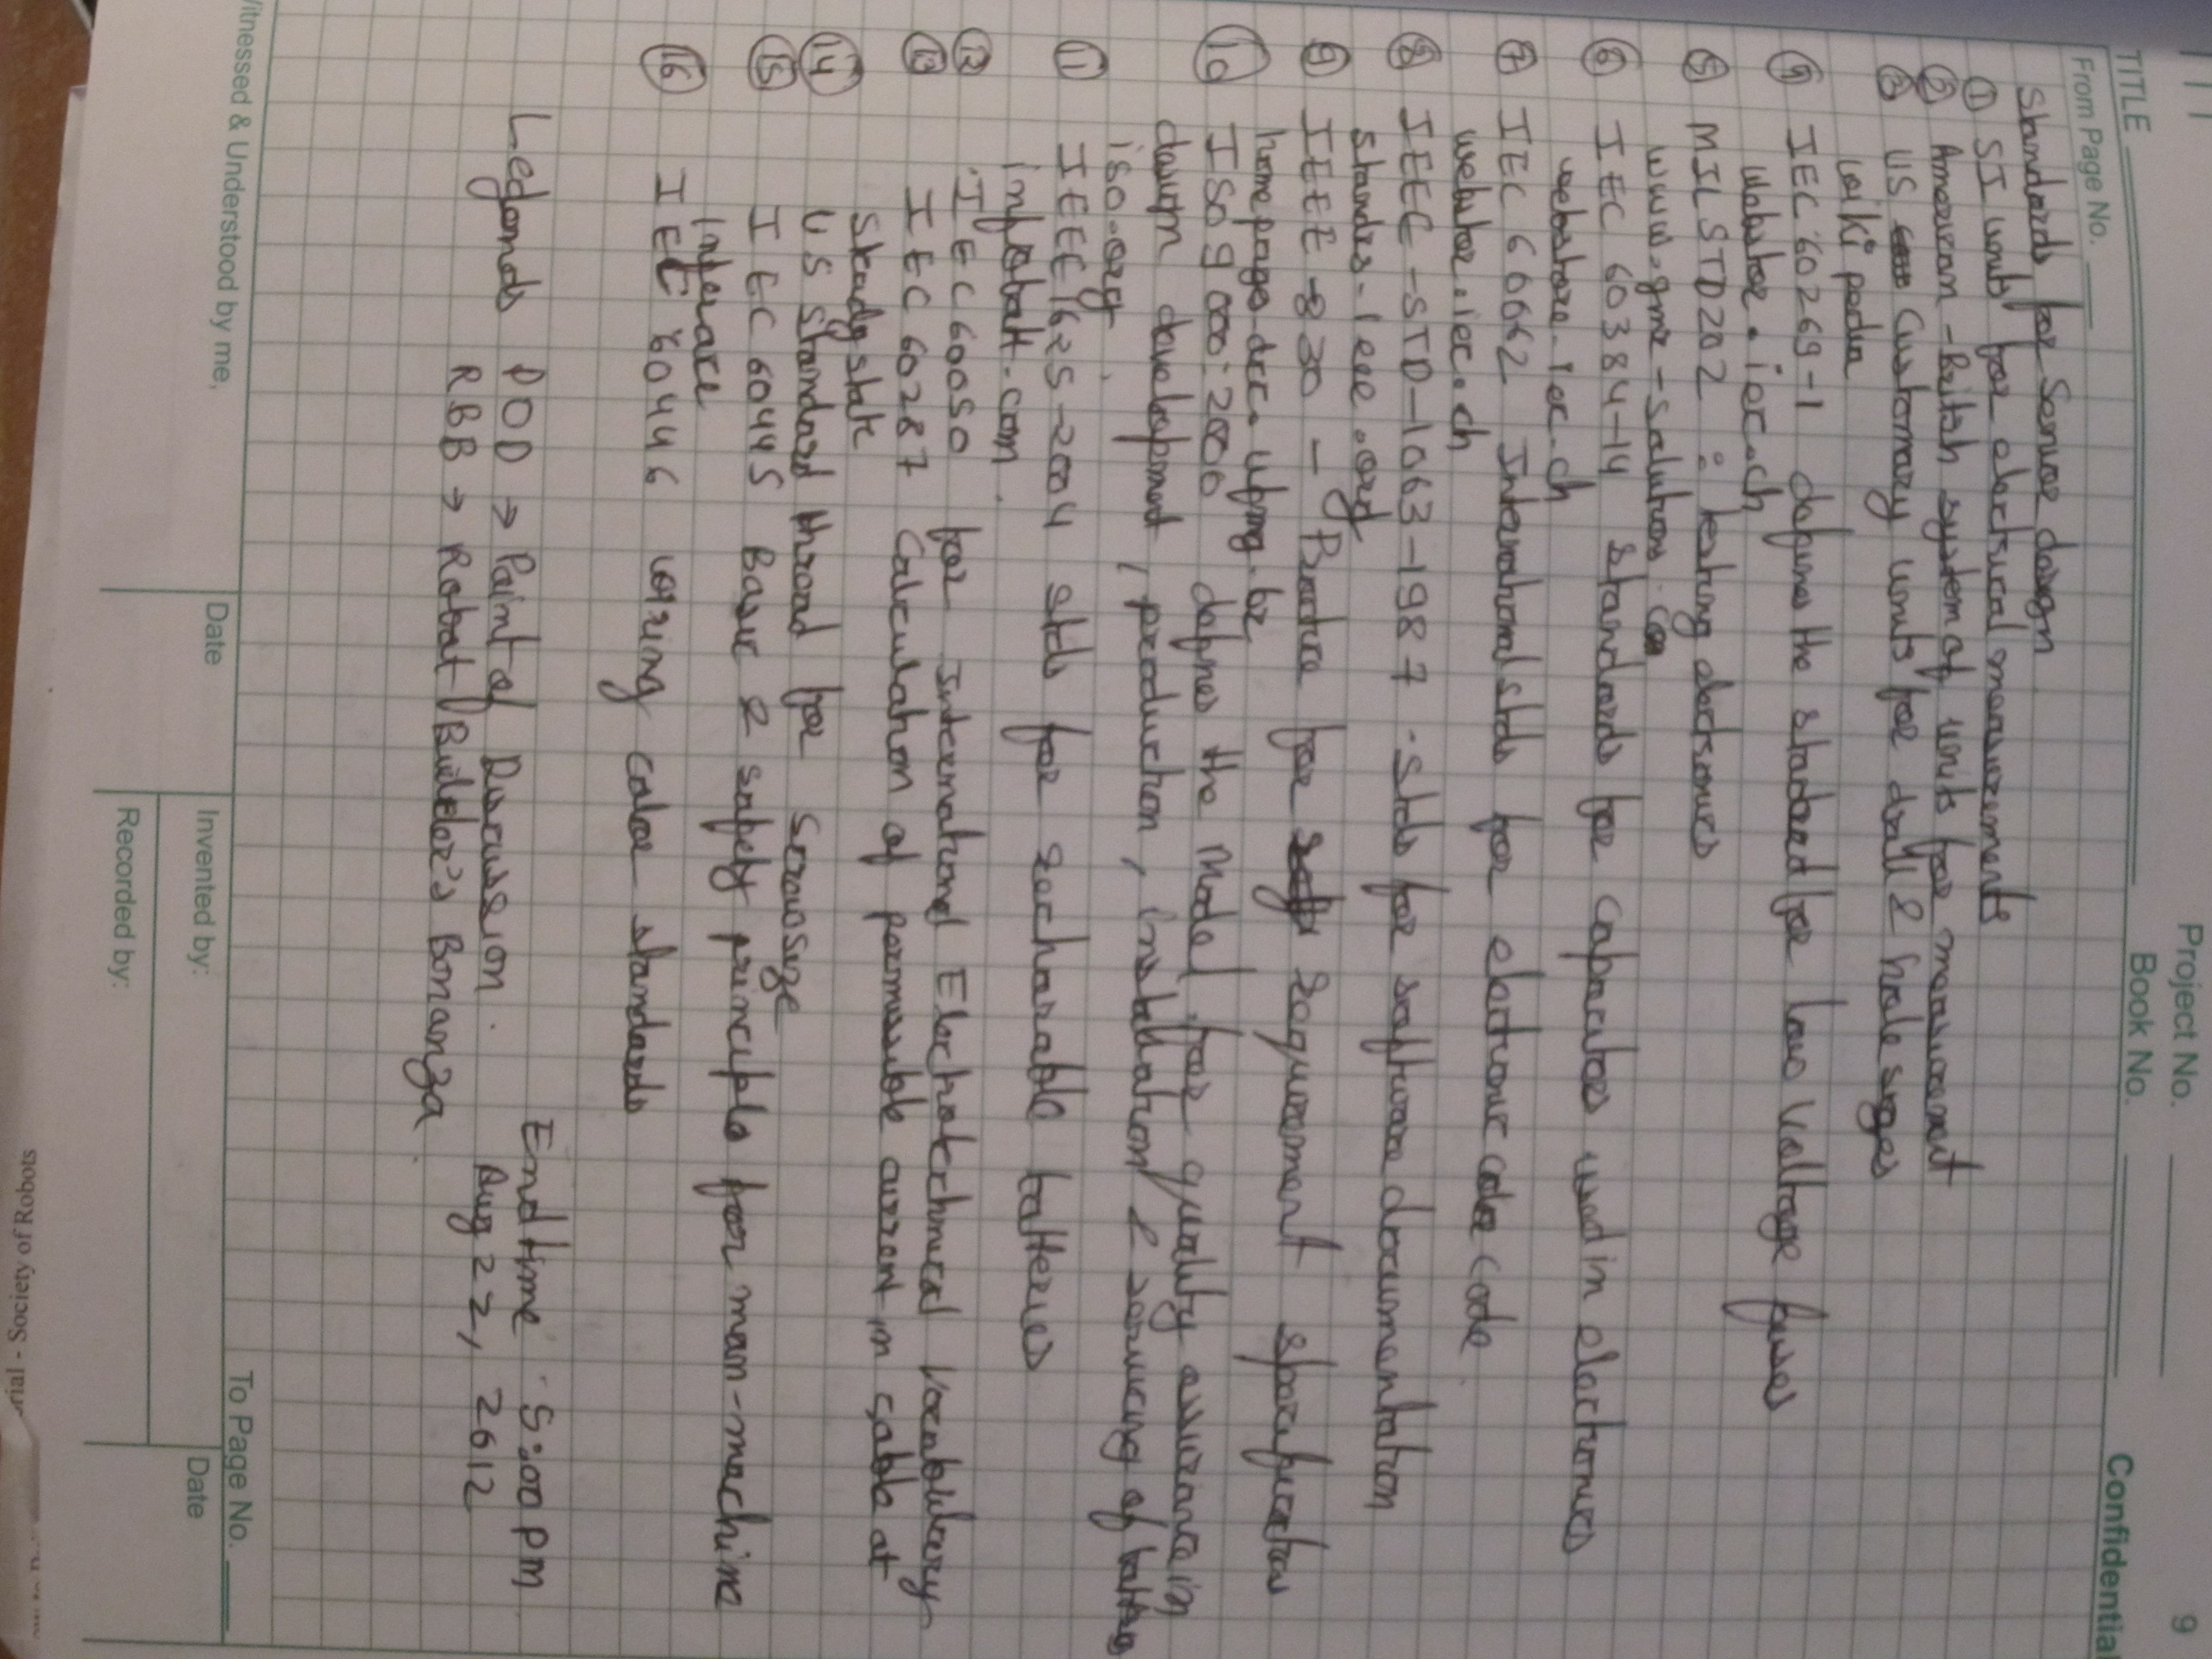 9
Project No.
Confidential
TITLE
Book No.
From Page No.
Standards for Sensor design
① SI units for electrical measurements
② American-British system of units for measurement
③ US Customary units for drill & hole sizes
wikipedia
④ IEC 60269-1 defines the standard for low Voltage fuses
webstor.iec.ch
⑤ MILSTD202 : testing electronics
www.gme-solutions.com
⑥ IEC 60384-14 standards for capacitors used in electronics
webstore.iec.ch
⑦ IEC 60062 International stds for electronic color code
webstor.iec.ch
⑧ IEEE-STD-1063-1987 - Stds for software documentation
standrs-ieee.org
⑨ IEEE-830 - Practice for requirement specification
homepages.dcc.ufmg.br
⑩ ISO 9000:2000 defines the Model for quality assurance in
design development, production, installation & servicing of
iso.org
⑪ IEEE 1625-2004 stds for recharable batteries
infobatt.com
⑫ IEC60050 for International Electrotechnical Vocabulary
⑬ IEC 60287 Calculation of permissible current in cable at
Steady state
⑭ US standard thread for screw size
⑮ IEC 60445 Basic & safety principle for man-machine
Interface
⑯ IEC 60446 wiring color standards
End time : 5:00 pm
Legends POD → Point of Discussion.
Aug 22, 2012
RBB → Robot Builder's Bonanza.
To Page No.
Witnessed & Understood by me,
Date
Invented by:
Date
Recorded by:
rial - Society of Robots